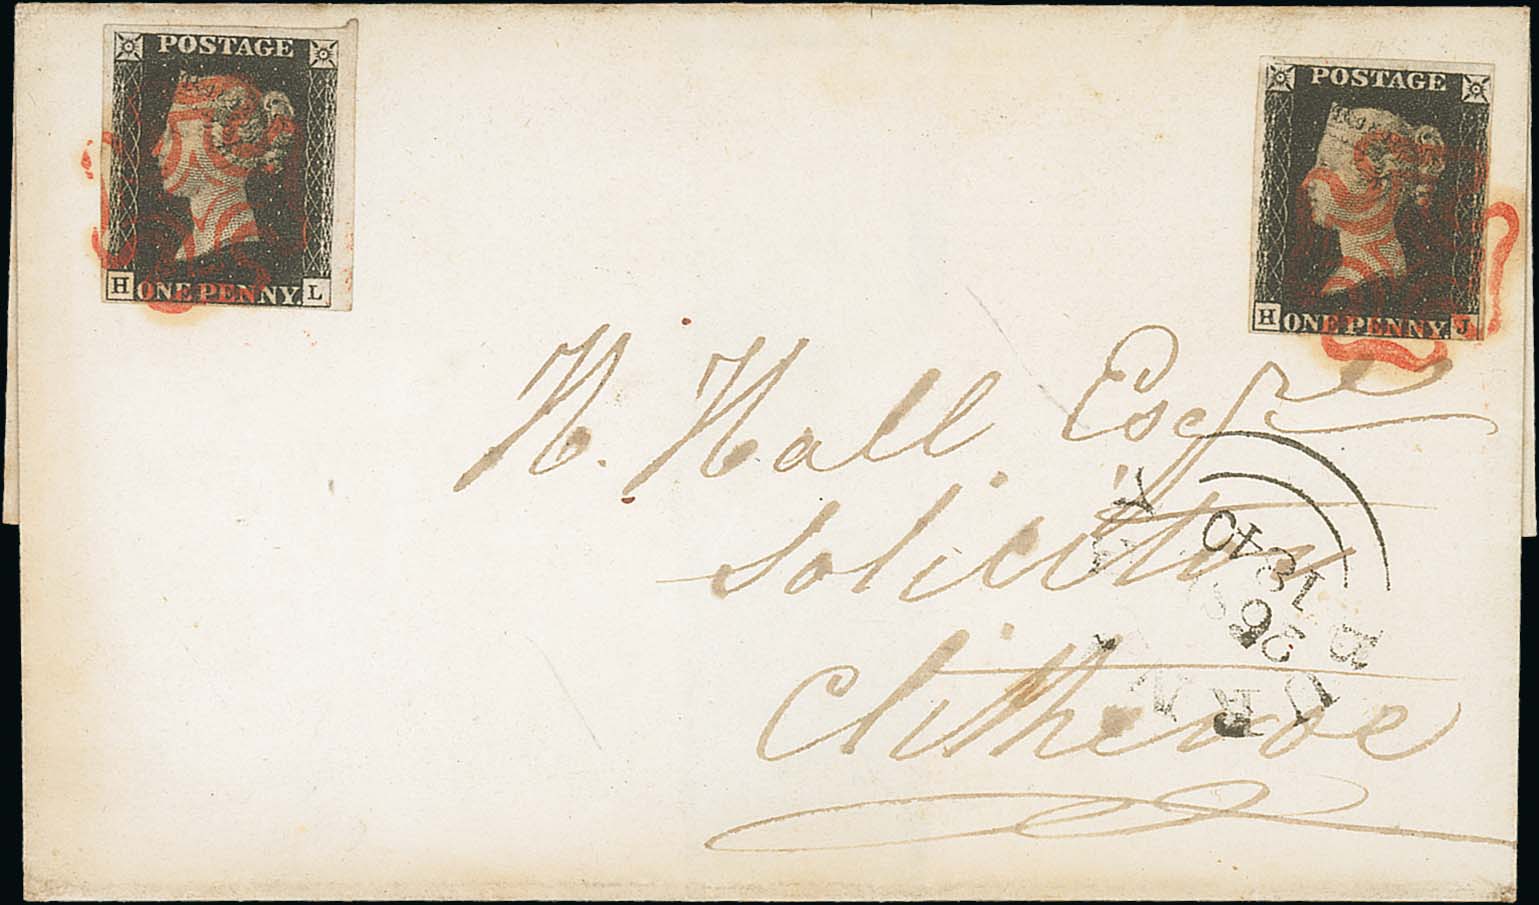 POSTAGE
H ONE PENNY. L
POSTAGE
H ONE PENNY. J
N. Hall Esqre
Solicitor
Clitheroe
BURN
26
1840